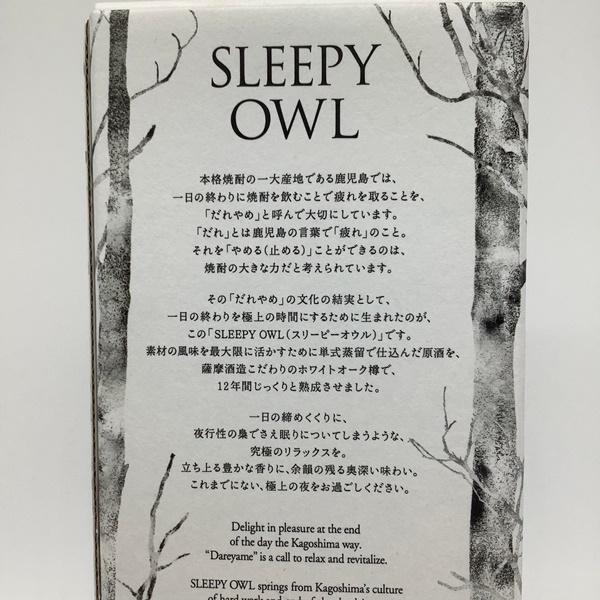 SLEEPY
OWL
本格焼酎の一大産地である鹿児島では、
一日の終わりに焼酎を飲むことで疲れを取ることを、
「だれやめ」と呼んで大切にしています。
「だれ」とは鹿児島の言葉で「疲れ」のこと。
それを「やめる(止める)」ことができるのは、
焼酎の大きな力だと考えられています。
その「だれやめ」の文化の結実として、
一日の終わりを極上の時間にするために生まれたのが、
この「SLEEPY OWL(スリーピーオウル)」です。
素材の風味を最大限に活かすために単式蒸留で仕込んだ原酒を、
薩摩酒造こだわりのホワイトオーク樽で、
12年間じっくりと熟成させました。
一日の締めくくりに、
夜行性の梟でさえ眠りについてしまうような、
究極のリラックスを。
立ち上る豊かな香りに、余韻の残る奥深い味わい。
これまでにない、極上の夜をお過ごしください。
Delight in pleasure at the end
of the day the Kagoshima way.
“Dareyame” is a call to relax and revitalize.
SLEEPY OWL springs from Kagoshima’s culture
of hard work and